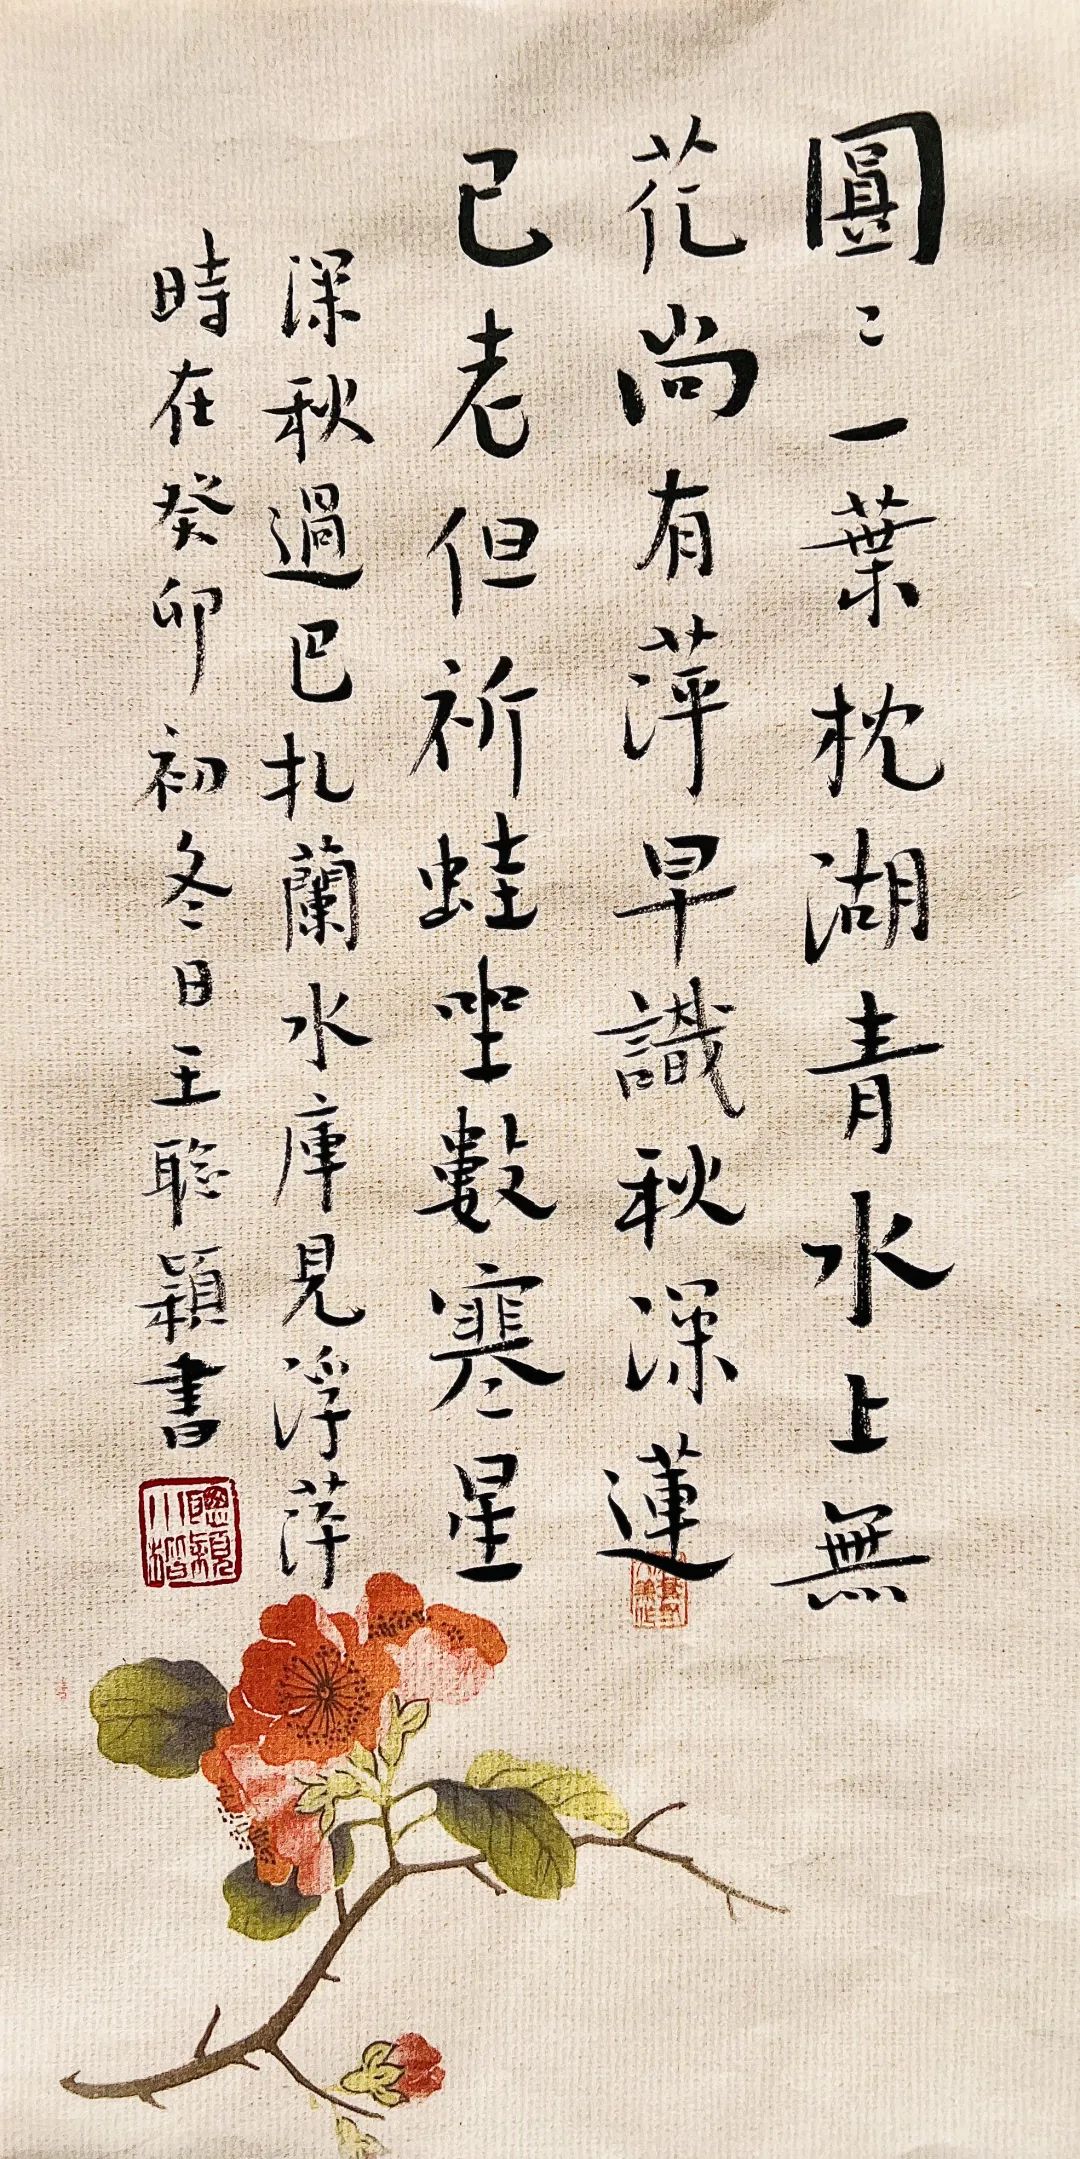 圓〻一葉枕湖青水上無
花尚有萍早識秋深蓮
已老但祈蛙坐數寒星
深秋過巴扎蘭水庫見浮萍
時在癸卯初冬日王聡穎書